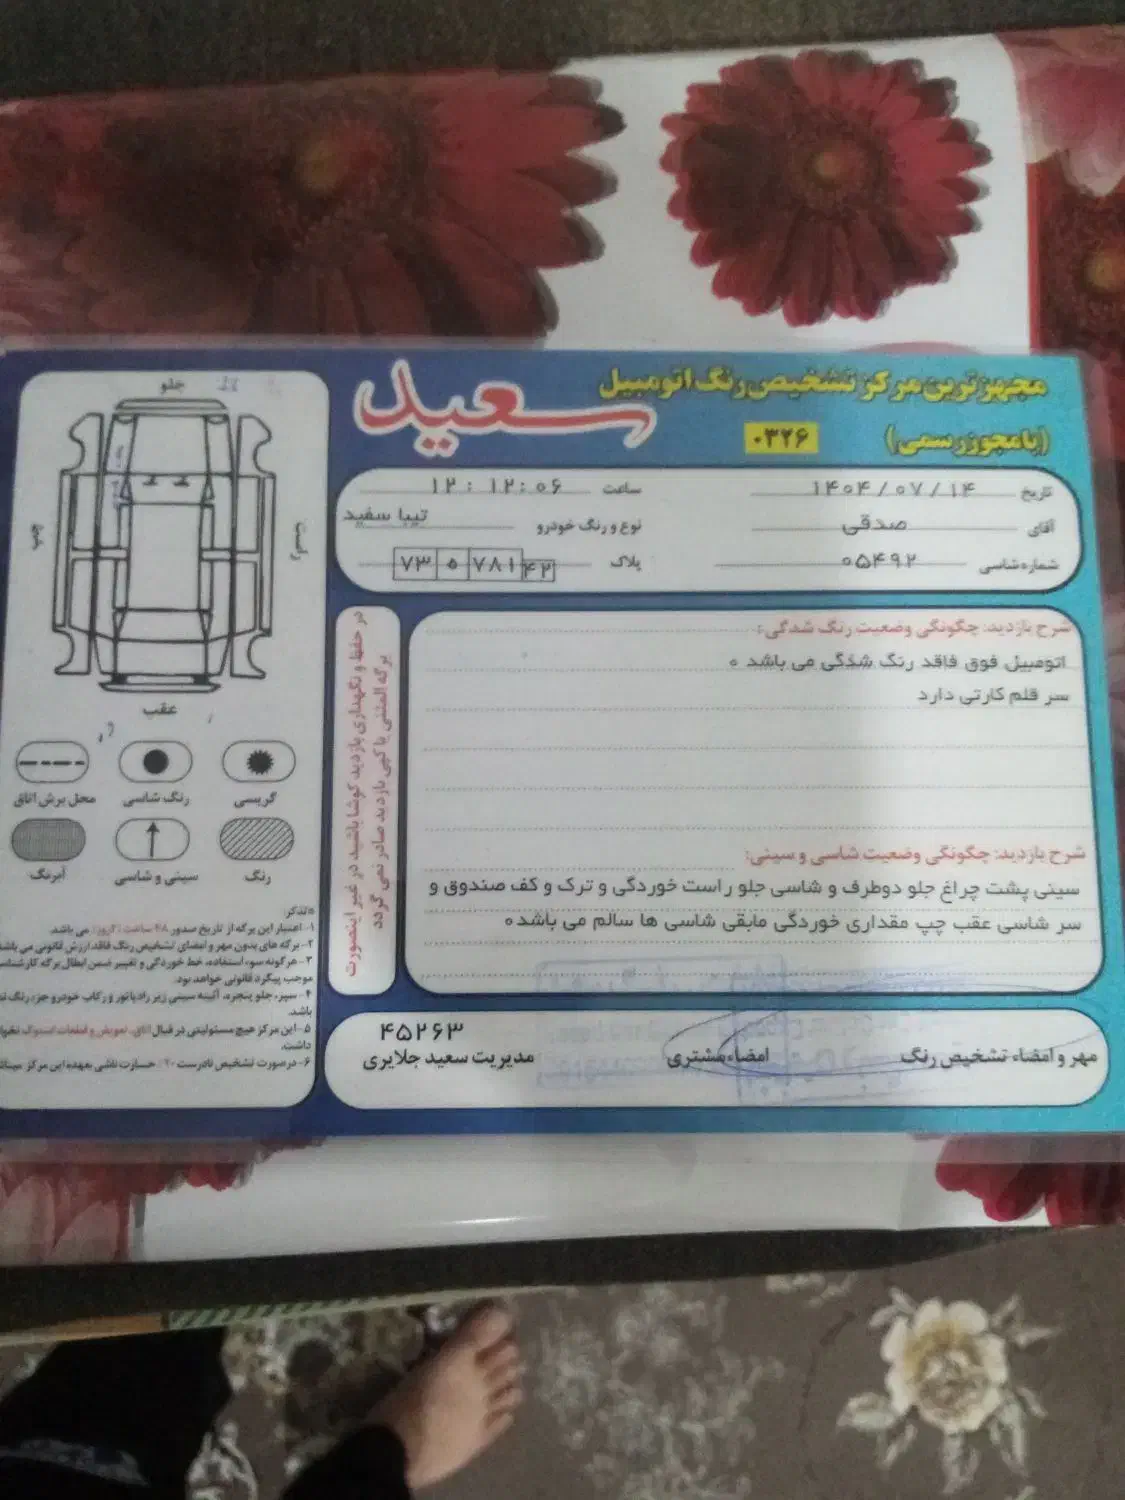 مجهزترین مرکز تشخیص رنگ اتومبیل
سعید
(بامجوز رسمی)
۰۳۲۶
تاریخ ۱۴۰۴/۰۷/۱۴
ساعت ۱۲:۱۲:۰۶
آقای صدقی
نوع و رنگ خودرو تیبا سفید
شماره شاسی ۰۵۴۹۲
پلاک ۷۳ ۵ ۷۸۱ ۴۲
شرح بازدید: چگونگی وضعیت رنگ شدگی:
اتومبیل فوق فاقد رنگ شدگی می باشد ه
سر قلم کارتی دارد
شرح بازدید: چگونگی وضعیت شاسی و سینی:
سینی پشت چراغ جلو دوطرف و شاسی جلو راست خوردگی و ترک و کف صندوق و
سر شاسی عقب چپ مقداری خوردگی مابقی شاسی ها سالم می باشد ه
مهر و امضاء تشخیص رنگ
امضاء مشتری
۴۵۲۶۳
مدیریت سعید جلایری
در حفظ و نگهداری بازدید کوشا باشید در غیر اینصورت
برگه المثنی یا کپی بازدید صادر نمی گردد
جلو
راست
چپ
عقب
گریسی
رنگ شاسی
محل برش اتاق
رنگ
سینی و شاسی
آبرنگ
تذکر
۱- اعتبار این برگه از تاریخ صدور ۴۸ ساعت (۲روز) می باشد.
۲- برگه های بدون مهر و امضای تشخیص رنگ فاقد ارزش قانونی می باشد
۳- هرگونه سوء استفاده، خط خوردگی و تغییر ضمن ابطال برگه کارشناسی
موجب پیگرد قانونی خواهد بود.
۴- سپر، جلو پنجره، آئینه سینی زیر رادیاتور و رکاب خودرو جزء رنگ
باشد.
۵- این مرکز هیچ مسئولیتی در قبال اتاق، تعویض و قطعات استوک
داشت.
۶- در صورت تشخیص نادرست ۲۰٪ خسارت ناشی بعهده این مرکز